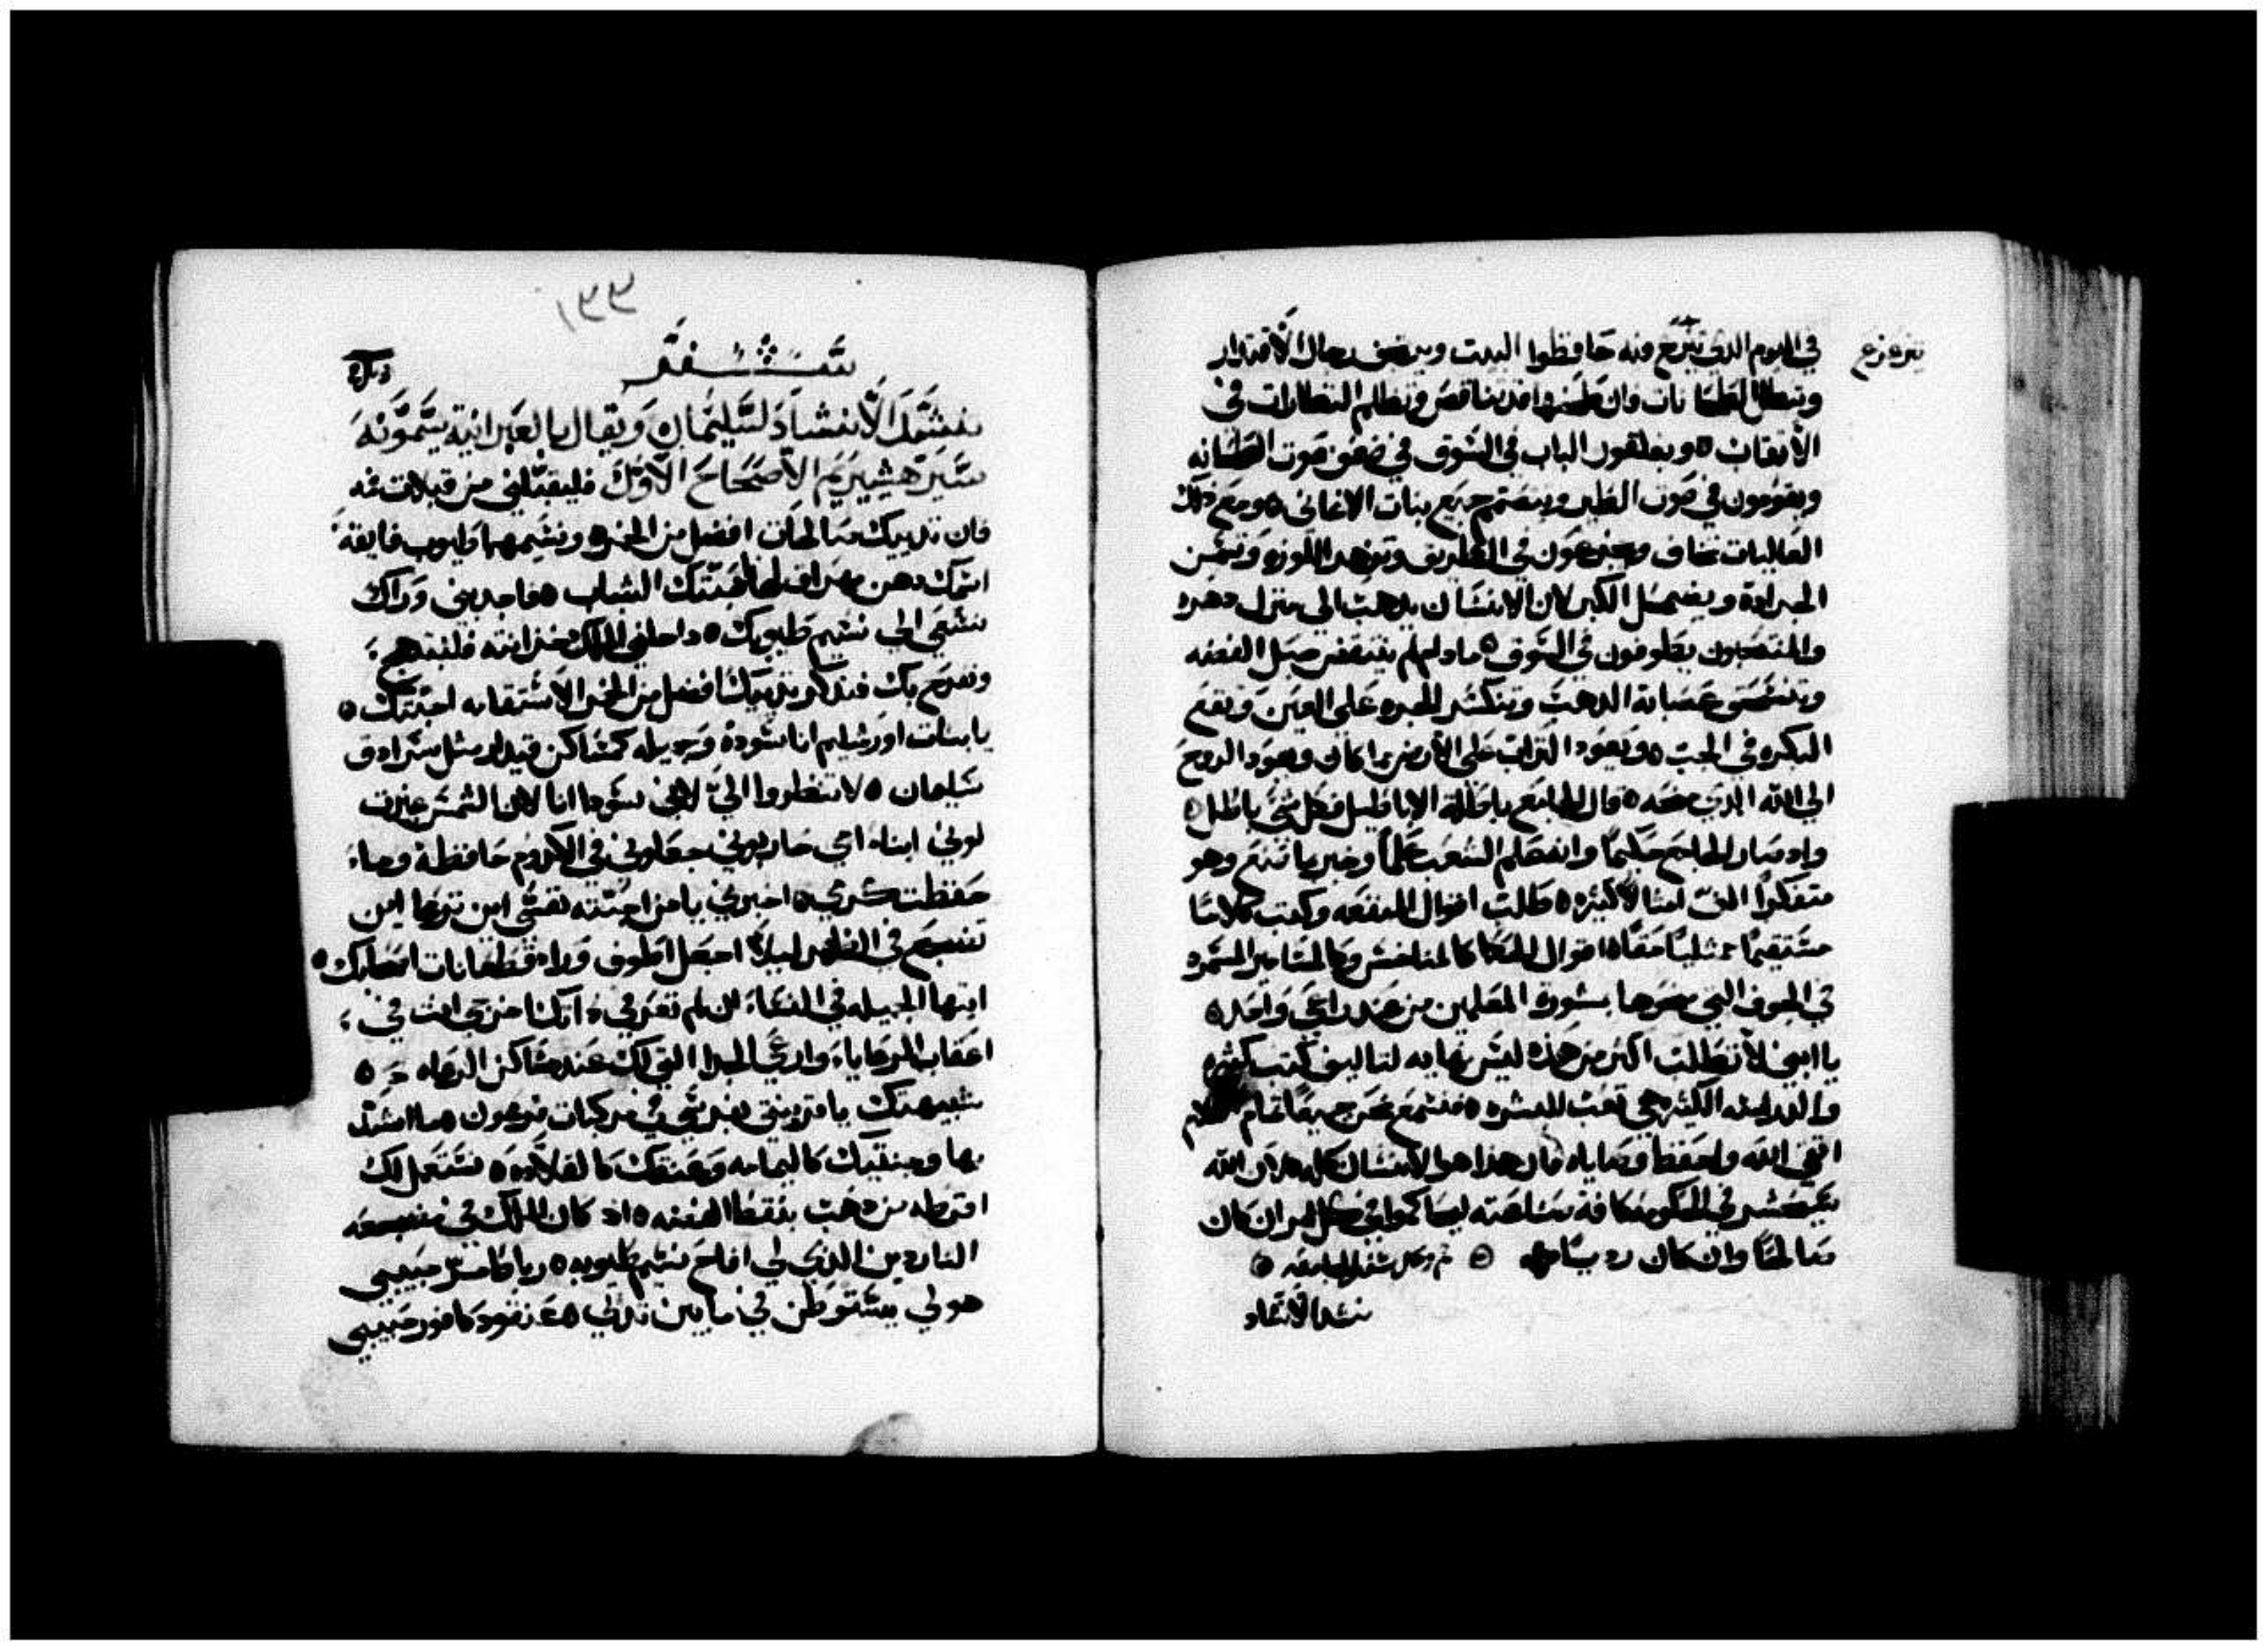 في اليوم الذي تتزعزع فيه حافظوا البيت وينحني رجال الاقتدار
وتبطل الطحانات فان طحينها قد يتناقص وتظلم النظارات في
الانقاب ٥ ويغلقون الباب في السوق في ضعف صوت الطحانه
ويقومون في صوت الطير ويتصمم جميع بنات الاغاني ٥ ومع ذلك
العاليات تخاف ويجزعون في الطريق وتزهر اللوزه وتسمن
الجرادة ويضمحل الكبر لان الانسان يذهب الي منزل دهره
والمنتحبون يطوفون في السوق ٥ ما دام لم ينقض حبل الفضه
وتنسحق عصابة الذهب وتنكسر الجره علي العين وتقع
البكره في الجب ٥ ويعود التراب علي الارض كما كان ويعود الروح
الي الله الذي منحه ٥ قال الجامع باطلة الاباطيل فكل شي باطل ٥
واذ صار الجامع حكيما وافهم الشعب علما وخبر بما صنع وهو
متفكرا الف امثالا كثيره ٥ طلب اقوال المنفعه وكتب كلاما
مستقيما ممتليا حقا ٥ اقوال الحكما كالمناخس وكالمسامير المسمره
في العمق التي منحوها بمشورة المعلمين من عند راعي واحد ٥
يا ابني لا تطلب اكثر من هذه ليس نهايه لتاليف كتب كثيره
والدراسه الكثيره هي تعب للبشره ٥ فنسمع جميعا تمام الكلام
اتقي الله واحفظ وصاياه فان هذا هو الانسان كله ٥ لان الله
سيحضر في الحكومه كافة
صالحا وان كان رديا ٥ تم وكمل سفر الجامعه ٥
نشيد الانشاد
تتزعزع
سفر
نشيد الانشاد لسليمان ويقال بالعبرانية يسمونه
سير هشيريم الاصحاح الاول فليقبلني من قبلات فمه
فان ثدييك صالحان افضل من الخمر ٥ ونسيمهما طيوب فايقة
اسمك دهن مهراق لهذا احبتك الشباب ٥ فاجذبني وراك
نسعي الي نسيم طيوبك ٥ ادخلني الملك خزانته فلنبتهج
ونفرح بك فنذكر ثدييك افضل من الخمر الاستقامه احبتك ٥
يا بنات اورشليم انا سودة وجميله كمساكن قيدار مثل سرادق
سليمان ٥ لا تنظروا الي لاني سودا انا لان الشمس غيرت
لوني ابناء امي حاربوني جعلوني في الكروم حافظة وما
حفظت كرمي ٥ اخبرني يا من احبته نفسي اين ترعا اين
تضجع في الظهر ليلا اجعل اطوف وراء قطعانات اصحابك ٥
ايتها الجميله في النساء ان لم تعرفي ذاتك اخرجي انت في
اعقاب الرعايا وارعي الجدا التي لك عند مساكن الرعاه ٥
شبيهتك يا قرينتي بفرسي في مركبات فرعون ٥
بها وجنتيك كاليمامه وعنقك كالقلادة ٥ نستعمل لك
اقرطه من ذهب بنقط الفضه ٥ اذ كان الملك في مضجعه
الناردين الذي لي افاح نسيم طيوبه ٥ رباط المر حبيبي
هو لي يستوطن في ما بين ثديي ٥ عنقود كافور حبيبي